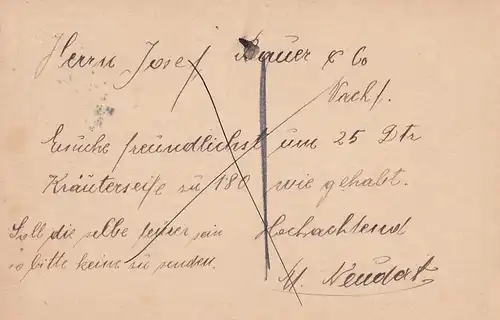 Herrn Josef Bauer & Co
Nachf.
Ersuche freundlichst um 25 Dtz
Kräuterseife zu 180 wie gehabt.
Soll die selbe teurer sein
so bitte keine zu senden.
Hochachtend
M. Neudert